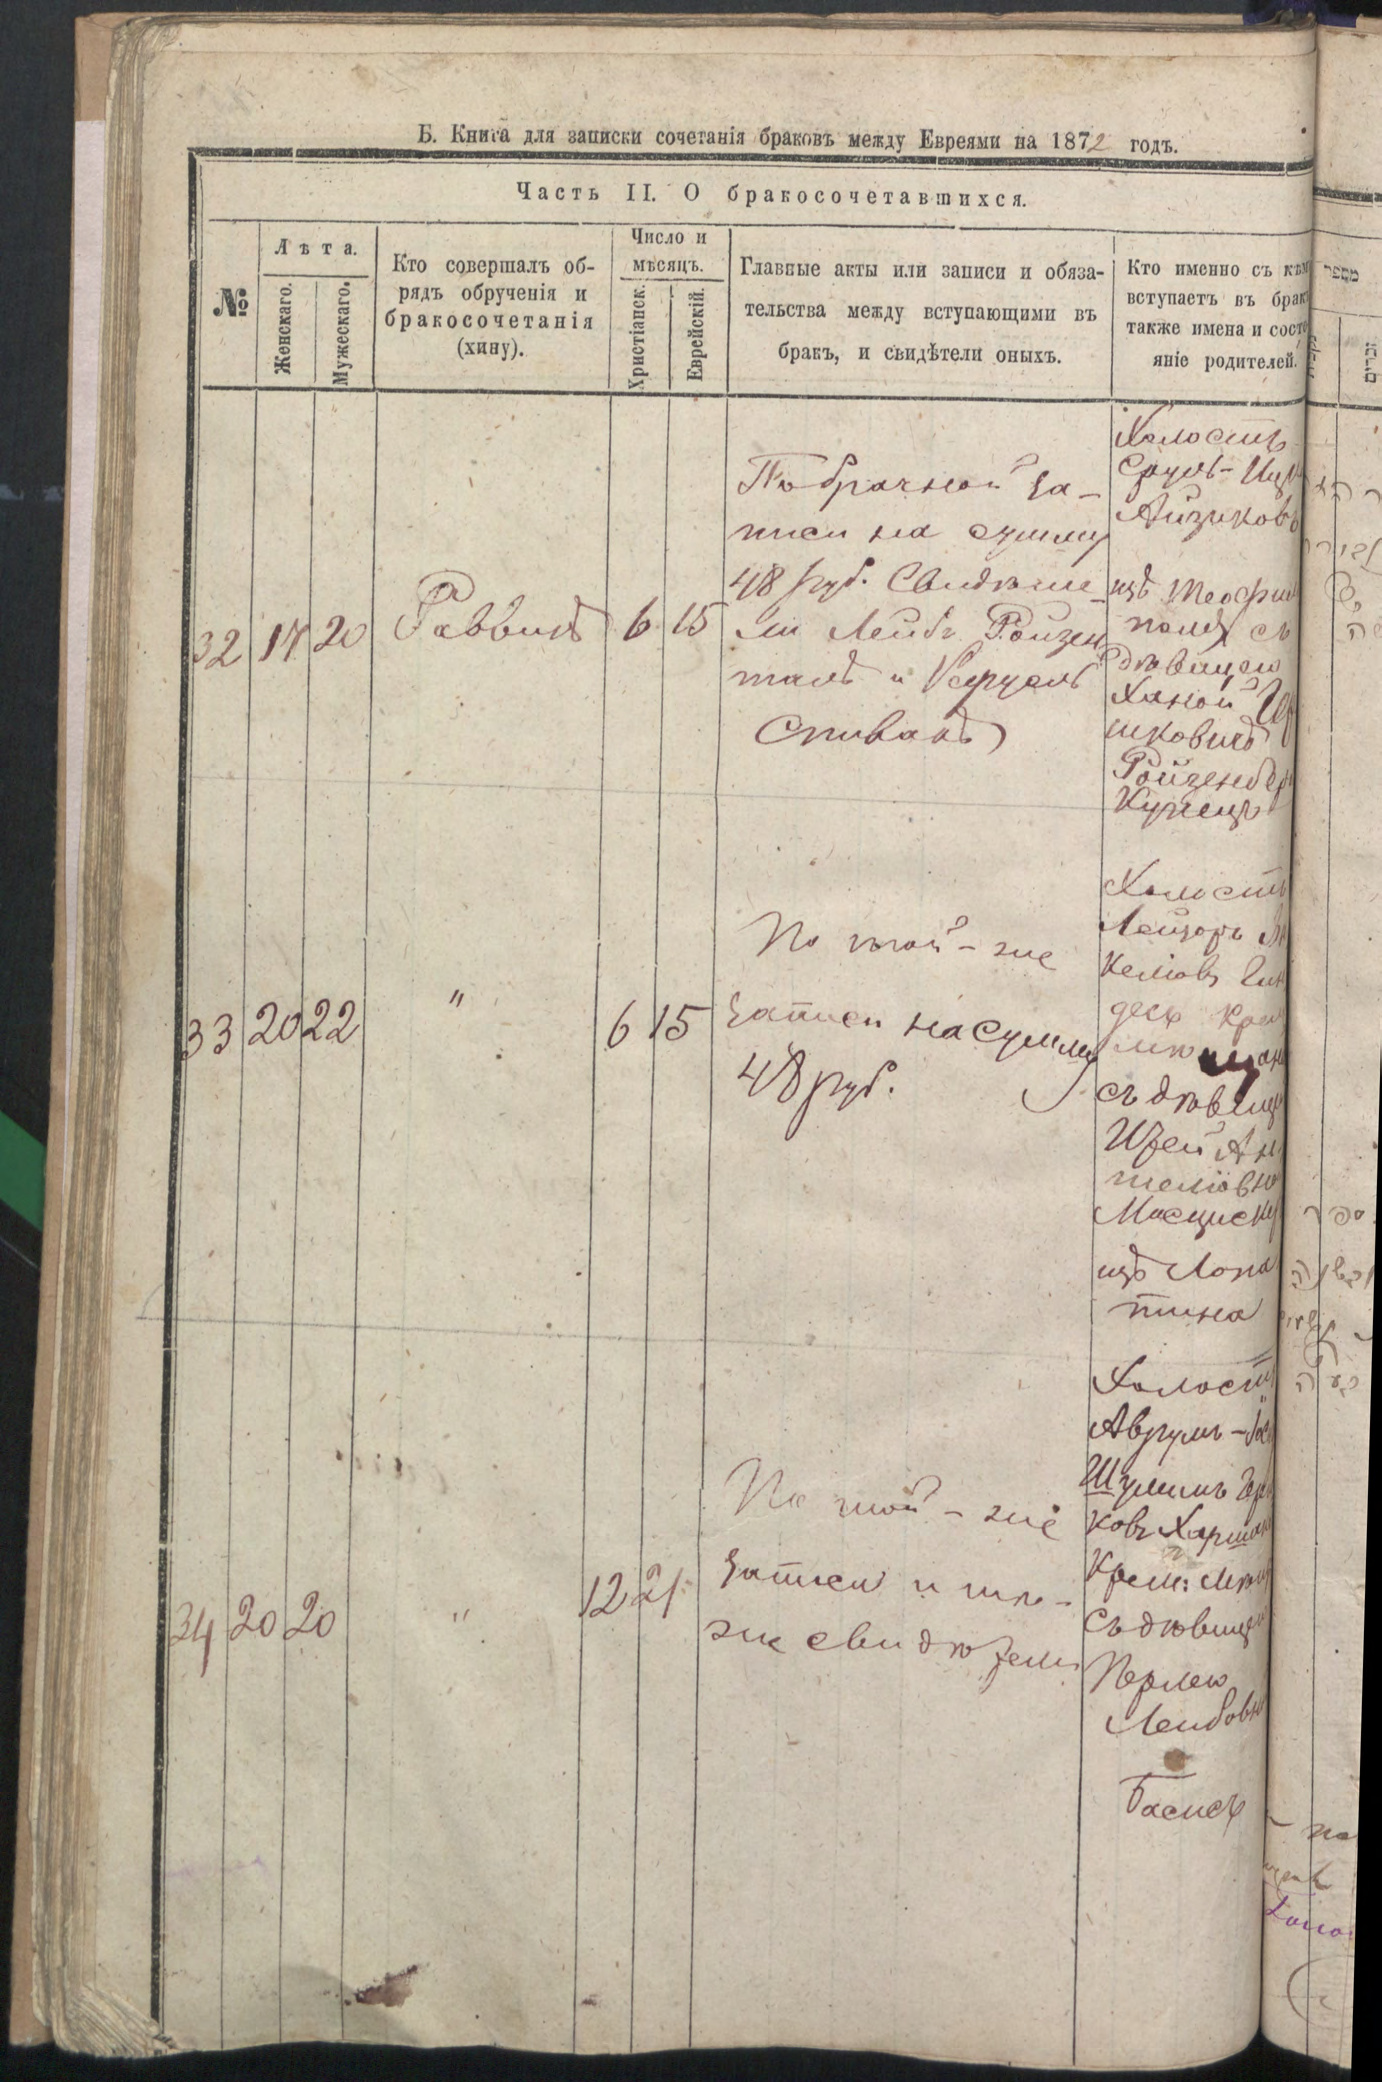 Б. Книга для записки сочетанія браковъ между Евреями на 1872 годъ.
Часть II. О бракосочетавшихся.
№
Лѣта.
Женскаго.
Мужескаго.
Кто совершалъ об-
рядъ обрученія и
бракосочетанія
(хину).
Число и
мѣсяцъ.
Христіанск.
Еврейскій.
Главные акты или записи и обяза-
тельства между вступающими въ
бракъ, и свидѣтели оныхъ.
Кто именно съ кѣм
вступаетъ въ брак
также имена и состо
яніе родителей.
32 17 20 Раввинъ 6 15
По брачной за-
писи на сумму
48 руб. Свидѣте-
ли Лейбъ Ройзен
талъ и
Спивакъ
Холостъ
Сруль-Ицк
Айзиковъ
изъ Теофи
поля съ
дѣвицею
Ханой
шковичъ
Ройзенбер
Купецъ
33 20 22 " 6 15
По той-же
записи на сумму
48 руб.
Холостъ
Лейзоръ
келіовъ
десъ Крем
мѣщан
съ дѣвице
теліовно
изъ Лопа
тина
34 20 20 " 12 21
По той-же
записи и тѣ-
же свидѣтели
Холостъ
Аврумъ-
Шулимъ
ковъ Харшак
Крем: Мѣщ
съ дѣвицею
Перлею
Лейбовн
Басисъ